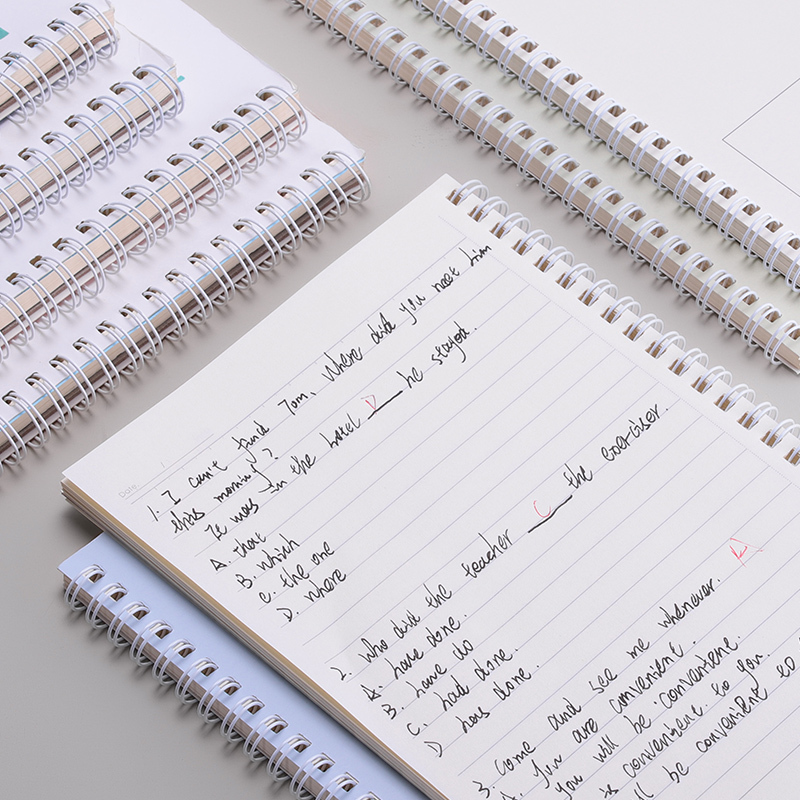 Date.
1. I can't find Tom, Where did you meet him
this morning?
It was in the hotel D he stayed.
A. that
B. which
C. the one
D. where
2. Who did the teacher C the exerciser.
A. have done.
B. have do
C. had done.
D has done.
3. Come and see me whenever. A
A. You are convenient.
You will be convenience.
is convenient to you.
ll be convenient to